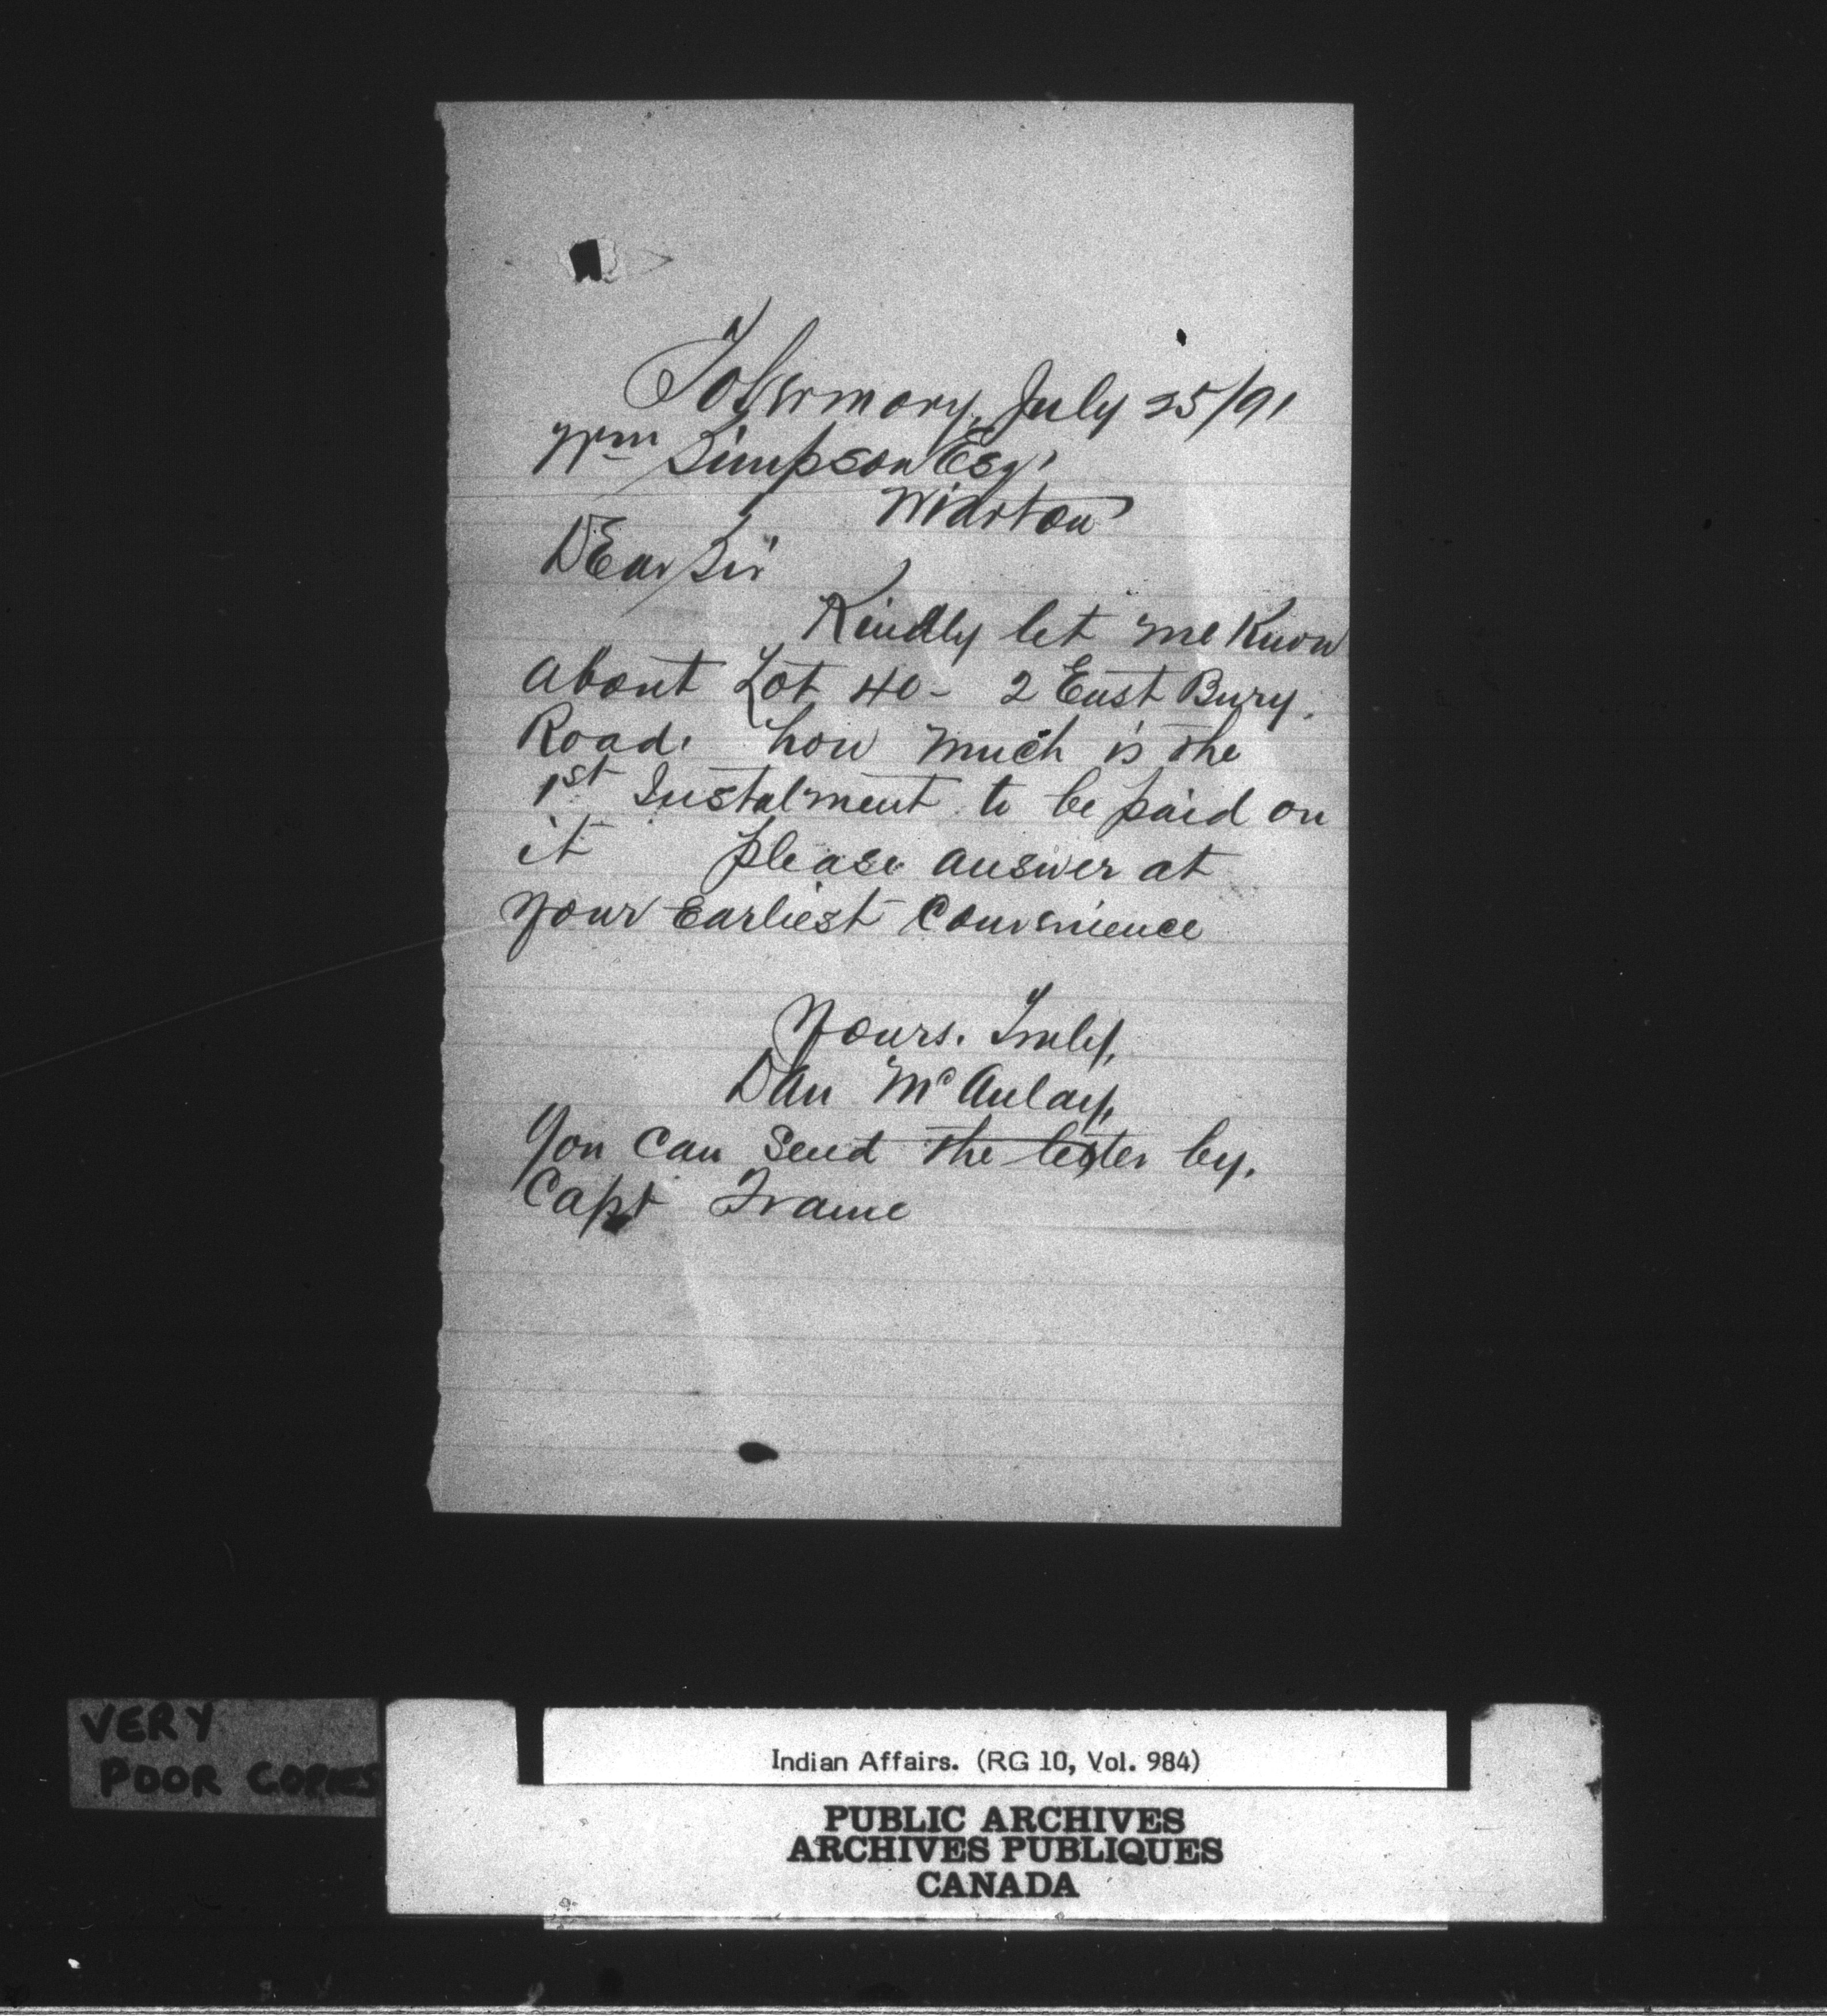 Tobermory, July 25/91
Wm Simpson Esq.
Wiarton
DEar Sir
Kindly let me Know
about Lot 40 - 2 East Bury.
Road. how much is the
1st Instalment to be paid on
it please answer at
your Earliest Convenience
Yours. Truly,
Dan McAulay,
You Can Send the letter by.
Capt Frame
VERY
POOR COPIES
Indian Affairs. (RG 10, Vol. 984)
PUBLIC ARCHIVES
ARCHIVES PUBLIQUES
CANADA